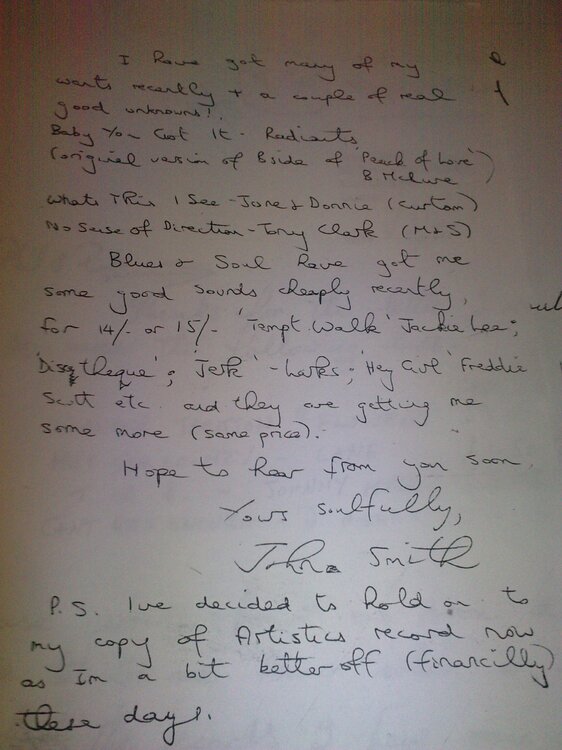 I have got many of my
wants recently + a couple of real
good unknowns!.
Baby You Got It - Radiants
(original version of B side of 'Peach of Love')
B McLure
Whats This I See - June & Donnie (Curtom)
No Sense of Direction - Tony Clark (M+S)
Blues & Soul have got me
some good sounds cheaply recently,
for 14/- or 15/- 'Tempt. Walk' Jackie Lee;
'Discotheque'; 'Jerk' - Larks; 'Hey Girl' Freddie
Scott etc. and they are getting me
some more (same price).
Hope to hear from you soon
Yours soulfully,
John Smith
P.S. Ive decided to hold on to
my copy of Artistics record now
as Im a bit better off (financilly)
these days.